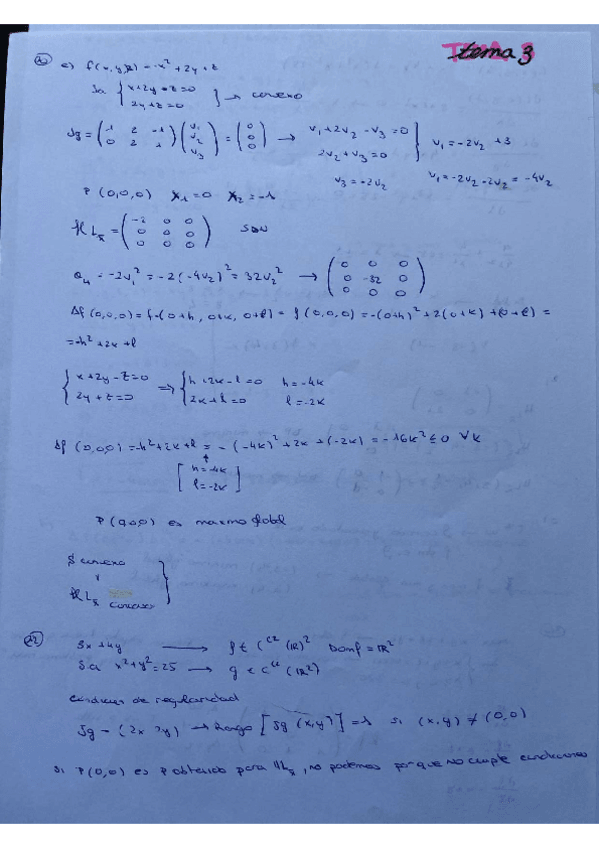 tema 3
e) f(x,y,z) = -x² + 2y + z
s.a { x+2y-z=0 } → convexo
{ 2y+z=0
Jg = (1 2 -1; 0 2 1) (v₁ v₂ v₃) = (0 0 0) → v₁+2v₂-v₃=0 } v₁=-2v₂+v3
2v₂+v₃=0
v₃=-2v₂ v₁=-2v₂-2v₂=-4v₂
P(0,0,0) λ₁=0 λ₂=-1
HL = (-2 0 0; 0 0 0; 0 0 0) SDN
-2v₁² = -2(-4v₂)² = 32v₂² → (0 0 0; 0 -32 0; 0 0 0)
Δf(0,0,0) = f(0+h, 0+k, 0+l) - f(0,0,0) = -(0+h)²+2(0+k)+(0+l) =
= -h²+2k+l
{ x+2y-z=0 ⇒ { h+2k-l=0 h=-4k
{ 2y+z=0 { 2k+l=0 l=-2k
Δf(0,0,0) = -h²+2k+l = -(-4k)²+2k+(-2k) = -16k² ≤ 0 ∀k
[ h=-4k
l=-2k ]
P(0,0,0) es maximo global
S convexo
y
HL
12 3x+4y → f ∈ C² (ℝ)² Domf=ℝ²
s.a x²+y²=25 → g ∈ C (ℝ²)
de regularidad
Jg = (2x 2y) → Rango [Jg (x,y)] = 1 si (x,y) ≠ (0,0)
Si P(0,0) es P obtenido para HL, no podemos porque NO cumple condiciones